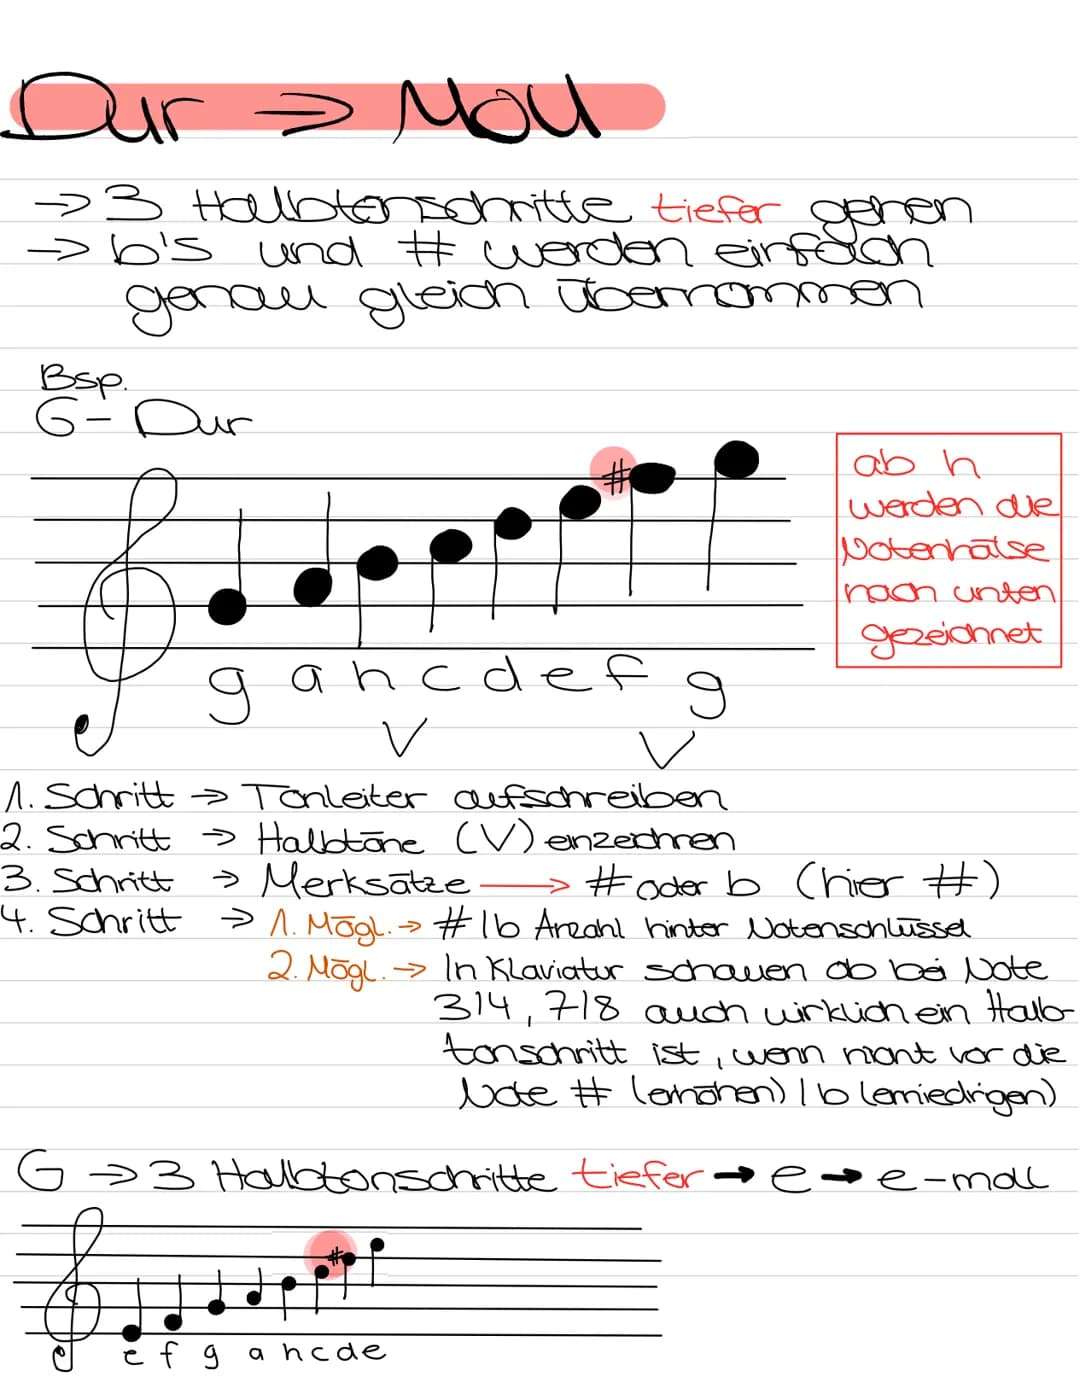 Dur => Moll
→ 3 Halbtonschritte tiefer gehen
→ b's und # werden einfach
genau gleich übernommen
Bsp.
G - Dur
#
ab h
werden die
Notenhälse
nach unten
gezeichnet
g a h c d e f g
V V
1. Schritt → Tonleiter aufschreiben
2. Schritt → Halbtöne (V) einzeichnen
3. Schritt → Merksätze → # oder b (hier #)
4. Schritt → 1. Mögl. → # / b Anzahl hinter Notenschlüssel
2. Mögl. → In Klaviatur schauen ob bei Note
3/4, 7/8 auch wirklich ein Halb-
tonschritt ist, wenn nicht vor die
Note # (erhöhen) / b (erniedrigen)
G → 3 Halbtonschritte tiefer → e → e-moll
#
e f g a h c d e